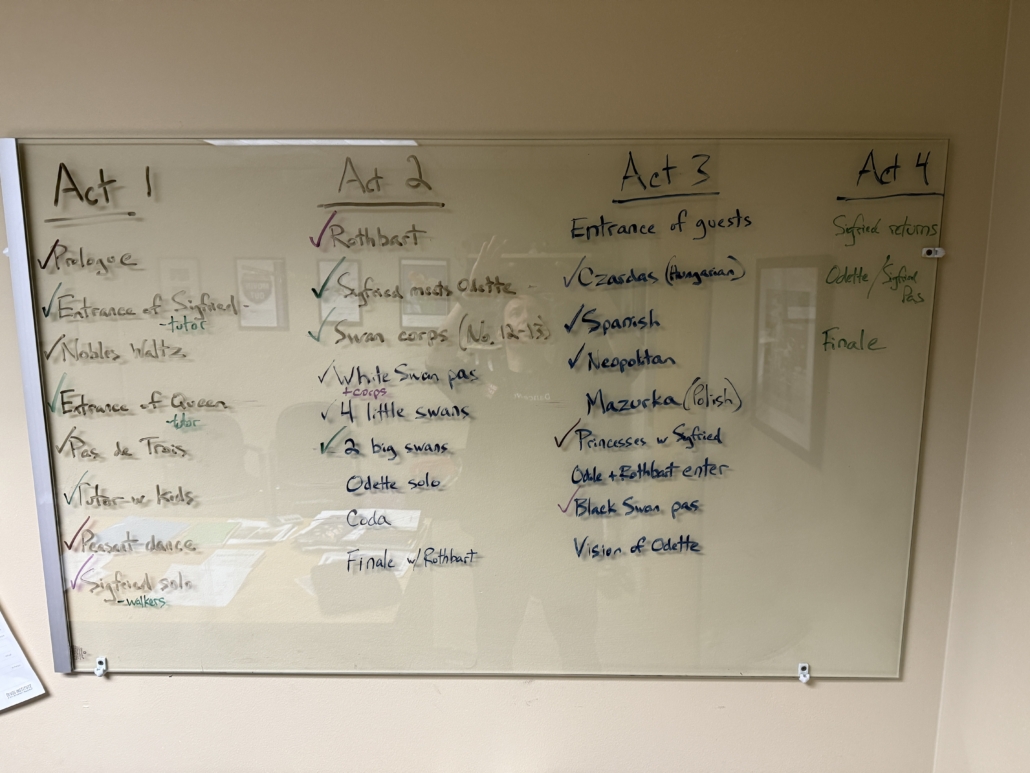 Act 1
✓Prologue
✓Entrance of Sigfried-
-tutor
✓Nobles Waltz
✓Entrance of Queen
-tutor
✓Pas de Trais
✓Tutor w kids
✓Peasant dance
✓Sigfried solo
-walkers
Act 2
✓Rothbart
✓Sygfried meets Odette
✓Swan corps (No. 12-13)
✓White Swan pas
+corps
✓4 little swans
✓2 big swans
Odette solo
Coda
Finale w/Rothbart
Act 3
Entrance of guests
✓Czasdas (Hungarian)
✓Spanish
✓Neopolitan
Mazurka (Polish)
✓Princesses w Sygfried
Odile + Rothbart enter
✓Black Swan pas
Vision of Odette
Act 4
Sigfried returns
Odette/Sigfried
Pas
Finale